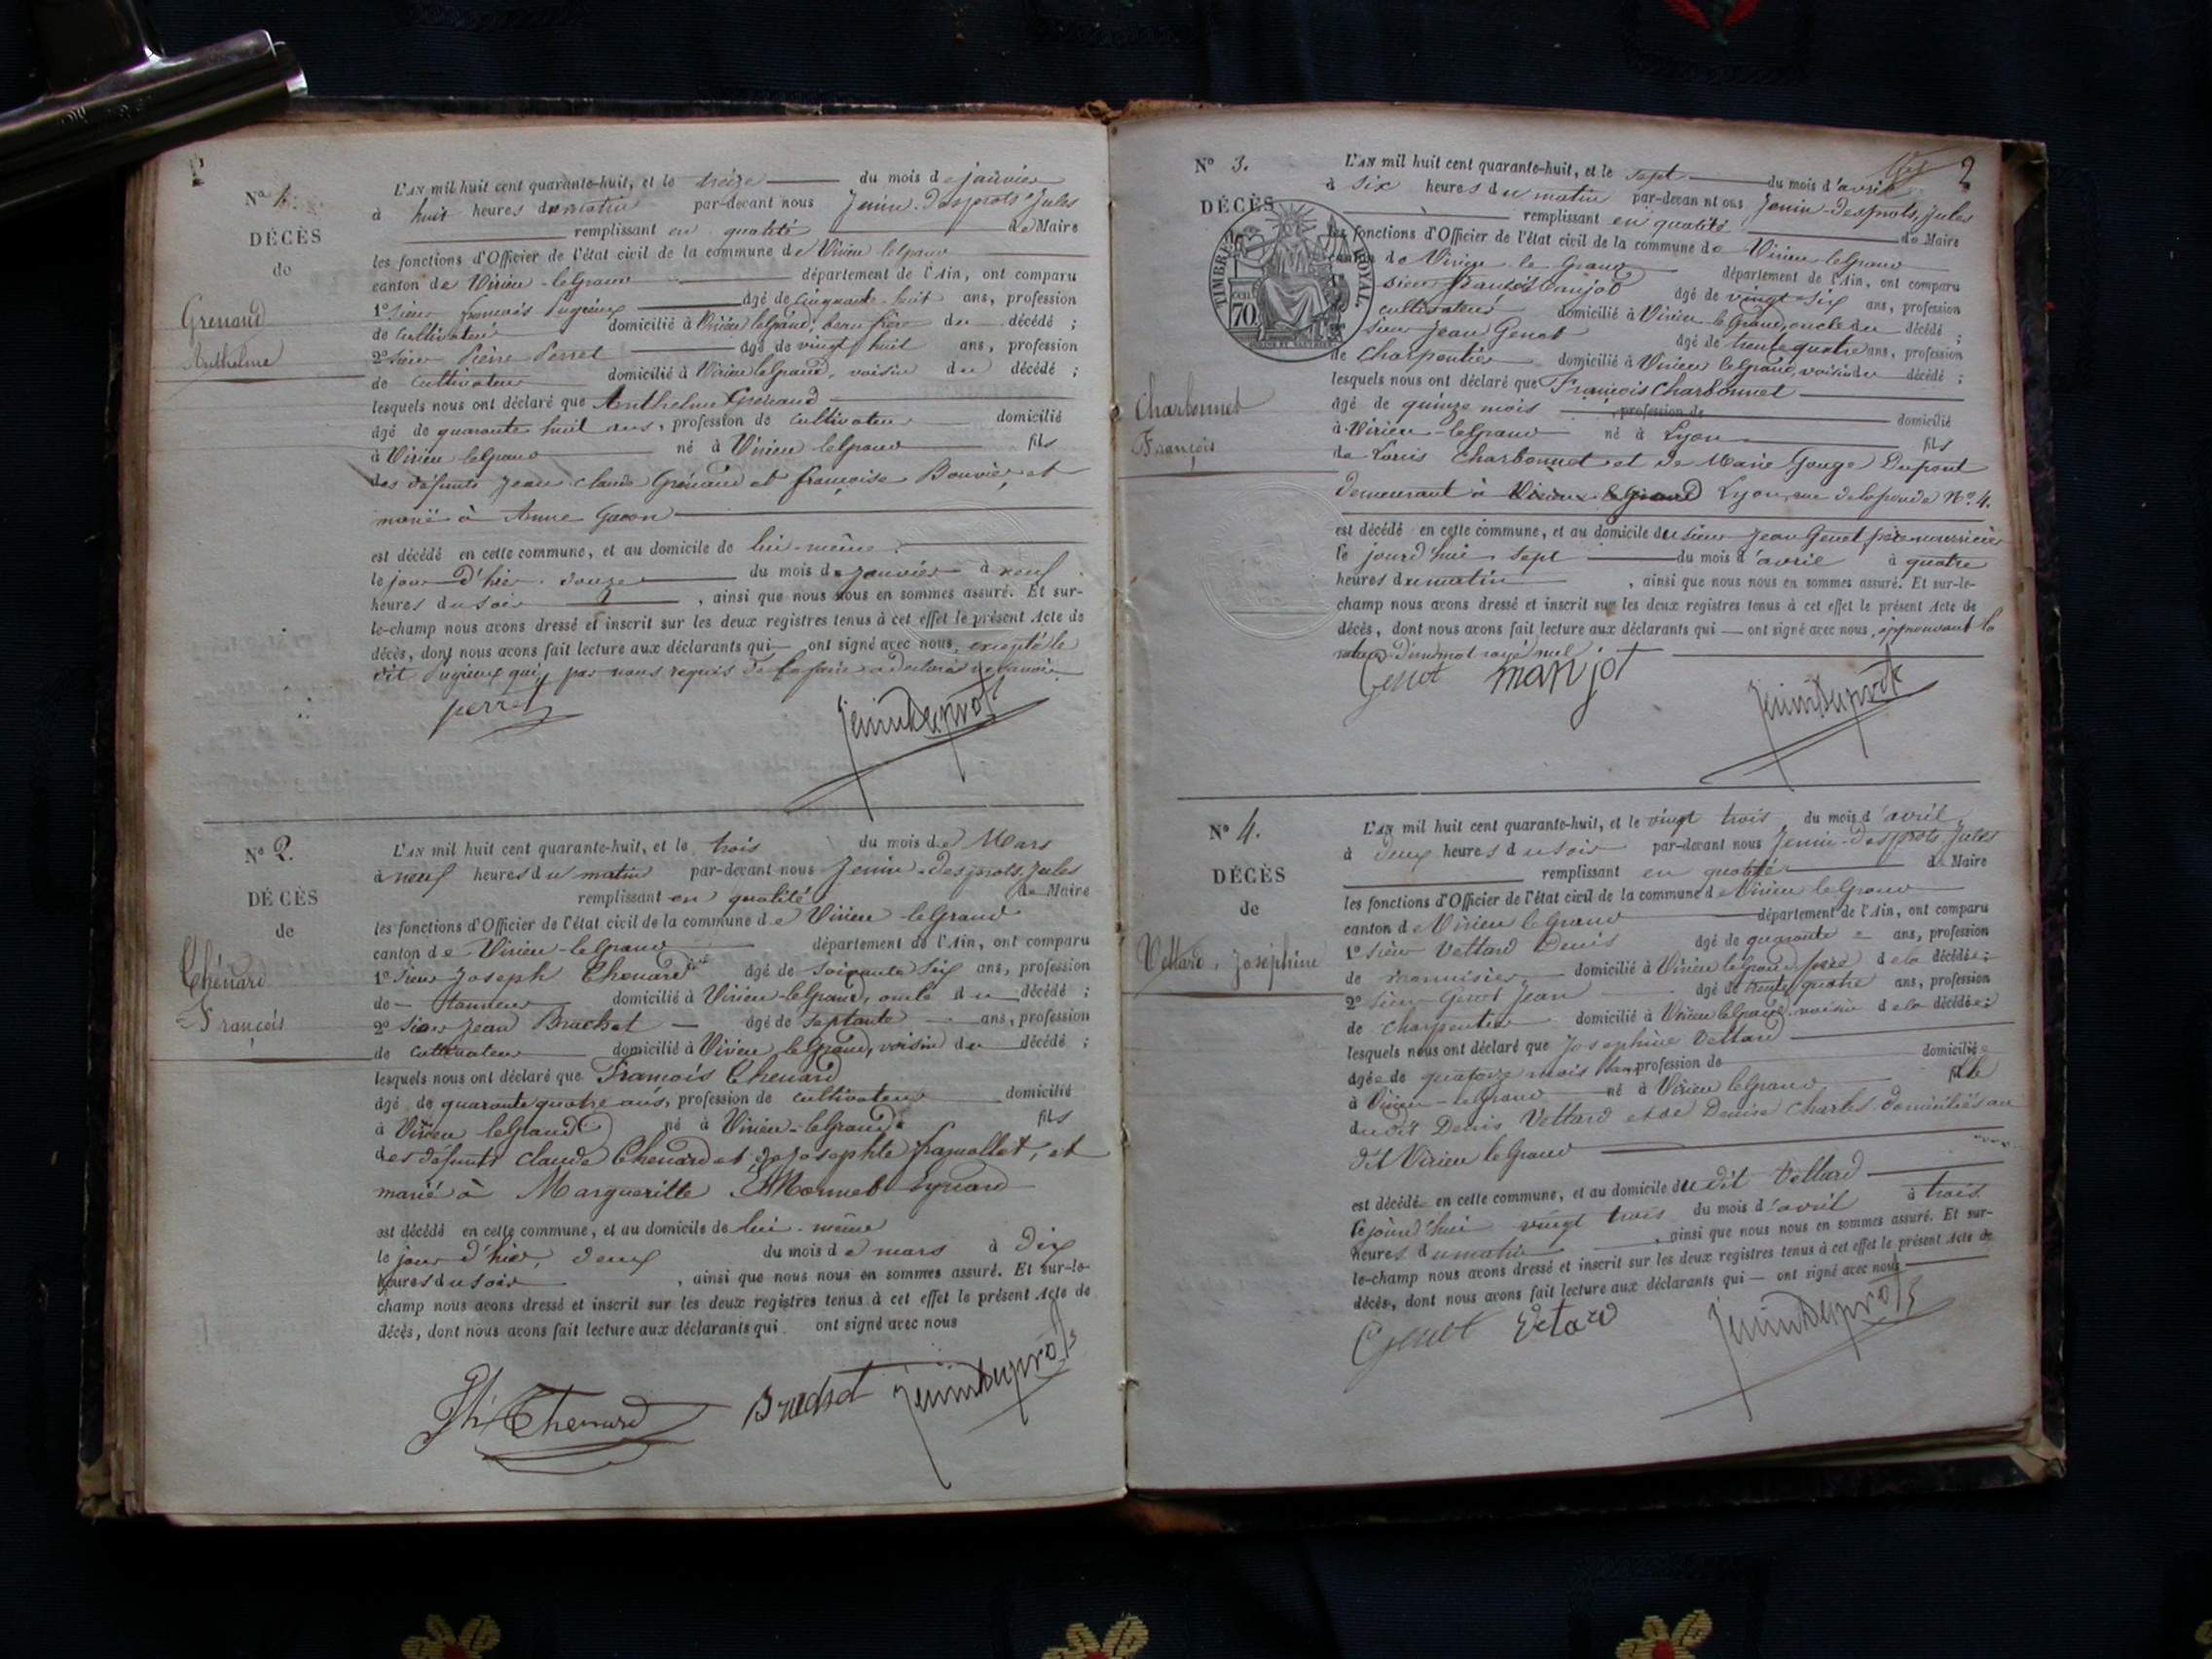 Nº 1.
DÉCÈS
de
Grenaud
Anthelme
L'AN mil huit cent quarante-huit, et le treize du mois de janvier
à huit heures du matin par-devant nous Jenin-Desprots, Jules
remplissant en qualité de Maire
les fonctions d'Officier de l'état civil de la commune de Virieu le grand
canton de Virieu-le grand département de l'Ain, ont comparu
1º sieur françois Pugieux âgé de cinquante-huit ans, profession
de cultivateur domicilié à Virieu le Grand, beau frère du décédé ;
2º sieur Pierre Perret âgé de vingt huit ans, profession
de cultivateur domicilié à Virieu le grand, voisin du décédé ;
lesquels nous ont déclaré que Anthelme Grenaud
âgé de quarante huit ans, profession de cultivateur domicilié
à Virieu le grand né à Virieu le grand fils
des défunts Jean-claude Grenaud et françoise Bouvier, et
marié à Anne Gacon
est décédé en cette commune, et au domicile de lui-même
le jour d'hier douze du mois de janvier à neuf
heures du soir, ainsi que nous nous en sommes assuré. Et sur-
le-champ nous avons dressé et inscrit sur les deux registres tenus à cet effet le présent Acte de
décès, dont nous avons fait lecture aux déclarants qui ont signé avec nous, excepté le
dit Pugieux qui, par nous requis de le faire a déclaré ne savoir.
perret
Jenin Desprots
Nº 2.
DÉCÈS
de
Chénard
François
L'AN mil huit cent quarante-huit, et le trois du mois de Mars
à neuf heures du matin par-devant nous Jenin-Desprots, Jules
remplissant en qualité de Maire
les fonctions d'Officier de l'état civil de la commune de Virieu-le Grand
canton de Virieu-le grand département de l'Ain, ont comparu
1º sieur Joseph Chenard âgé de soixante six ans, profession
de tanneur domicilié à Virieu-le Grand, oncle du décédé ;
2º sieur Jean Brachet âgé de septante ans, profession
de cultivateur domicilié à Virieu le Grand, voisin du décédé ;
lesquels nous ont déclaré que François Chenard
âgé de quarante quatre ans, profession de cultivateur domicilié
à Virieu le Grand né à Virieu-le Grand fils
des défunts Claude Chenard et de Josephte framollet, et
marié à Margueritte
est décédé en cette commune, et au domicile de lui-même
le jour d'hier, deux du mois de mars à dix
heures du soir, ainsi que nous nous en sommes assuré. Et sur-le-
champ nous avons dressé et inscrit sur les deux registres tenus à cet effet le présent Acte de
décès, dont nous avons fait lecture aux déclarants qui ont signé avec nous
Chenard Brachet Jenin Desprots
2
Nº 3.
DÉCÈS
TIMBRE ROYAL
70
Charbonnet
François
L'AN mil huit cent quarante-huit, et le sept du mois d'avril
à six heures du matin par-devant nous Jenin-Desprots, Jules
remplissant en qualité de Maire
les fonctions d'Officier de l'état civil de la commune de Virieu le grand
canton de Virieu le Grand département de l'Ain, ont comparu
sieur françois Manjot âgé de vingt-six ans, profession
cultivateur domicilié à Virieu le Grand, oncle du décédé ;
sieur Jean Genot âgé de trente quatre ans, profession
de charpentier domicilié à Virieu le Grand, voisin du décédé ;
lesquels nous ont déclaré que François Charbonnet
âgé de quinze mois profession de domicilié
à Virieu-le Grand né à Lyon fils
de Louis Charbonnet et de Marie Dupont
demeurant à Virieu le Grand Lyon, rue Nº 4.
est décédé en cette commune, et au domicile du sieur Jean Genot père nourricier
le jourd'hui sept du mois d'avril à quatre
heures du matin, ainsi que nous nous en sommes assuré. Et sur-le-
champ nous avons dressé et inscrit sur les deux registres tenus à cet effet le présent Acte de
décès, dont nous avons fait lecture aux déclarants qui ont signé avec nous, approuvant la
mot rayé nul
Genot Manjot
Jenin Desprots
Nº 4.
DÉCÈS
de
Vettard, Joséphine
L'AN mil huit cent quarante-huit, et le vingt trois du mois d'avril
à deux heures du soir par-devant nous Jenin-Desprots, Jules
remplissant en qualité de Maire
les fonctions d'Officier de l'état civil de la commune de Virieu le Grand
canton de Virieu le Grand département de l'Ain, ont comparu
1º sieur Vettard Denis âgé de quarante ans, profession
de menuisier domicilié à Virieu le grand, père de la décédée ;
2º sieur Genot Jean âgé de trente quatre ans, profession
de charpentier domicilié à Virieu le Grand, voisin de la décédée ;
lesquels nous ont déclaré que Josephine Vettard
âgée de quatorze mois sans profession de domiciliée
à Virieu-le Grand né à Virieu le Grand fille
dudit Denis Vettard et de Denise Charles domiciliés au
dit Virieu le Grand
est décédée en cette commune, et au domicile dudit Vettard
le jourd'hui vingt trois du mois d'avril à trois
heures du matin, ainsi que nous nous en sommes assuré. Et sur-
le-champ nous avons dressé et inscrit sur les deux registres tenus à cet effet le présent Acte de
décès, dont nous avons fait lecture aux déclarants qui — ont signé avec nous
Genot Vetard Jenin Desprots